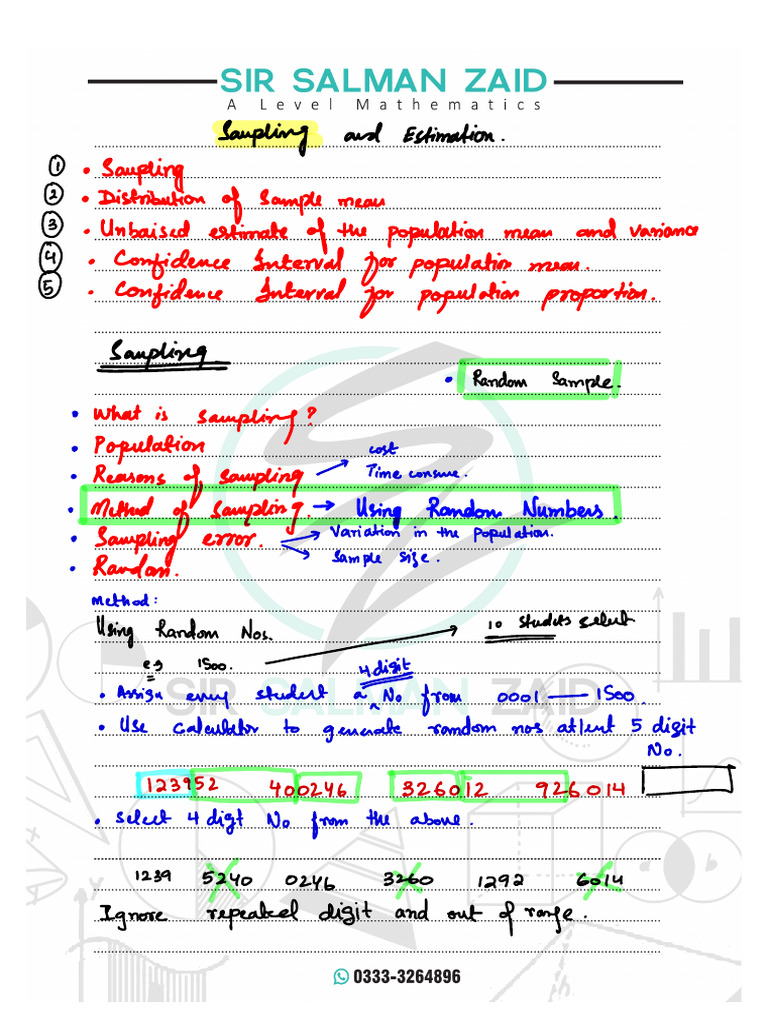 SIR SALMAN ZAID
A Level Mathematics
Sampling and Estimation.
① • Sampling
② • Distribution of Sample mean
③ • Unbaised estimate of the population mean and variance
④ • Confidence Interval for population mean.
⑤ • Confidence Interval for population proportion.
Sampling
• Random Sample.
• What is Sampling?
• Population
• Reasons of sampling → cost
Time consume.
• Method of Sampling. → Using Random Numbers.
• Sampling error. → Variation in the population.
→ Sample Size.
• Random.
Method:
Using Random Nos. 10 students select
eg 1500.
4 digit
• Assign every student a No from 0001 — 1500.
• Use calculator to generate random nos atlest 5 digit
No.
123952 400246 326012 926014
• Select 4 digt No from the above.
1239 5240 0246 3260 1292 6014
Ignore repeated digit and out of range.
0333-3264896
SIR SALMAN ZAID